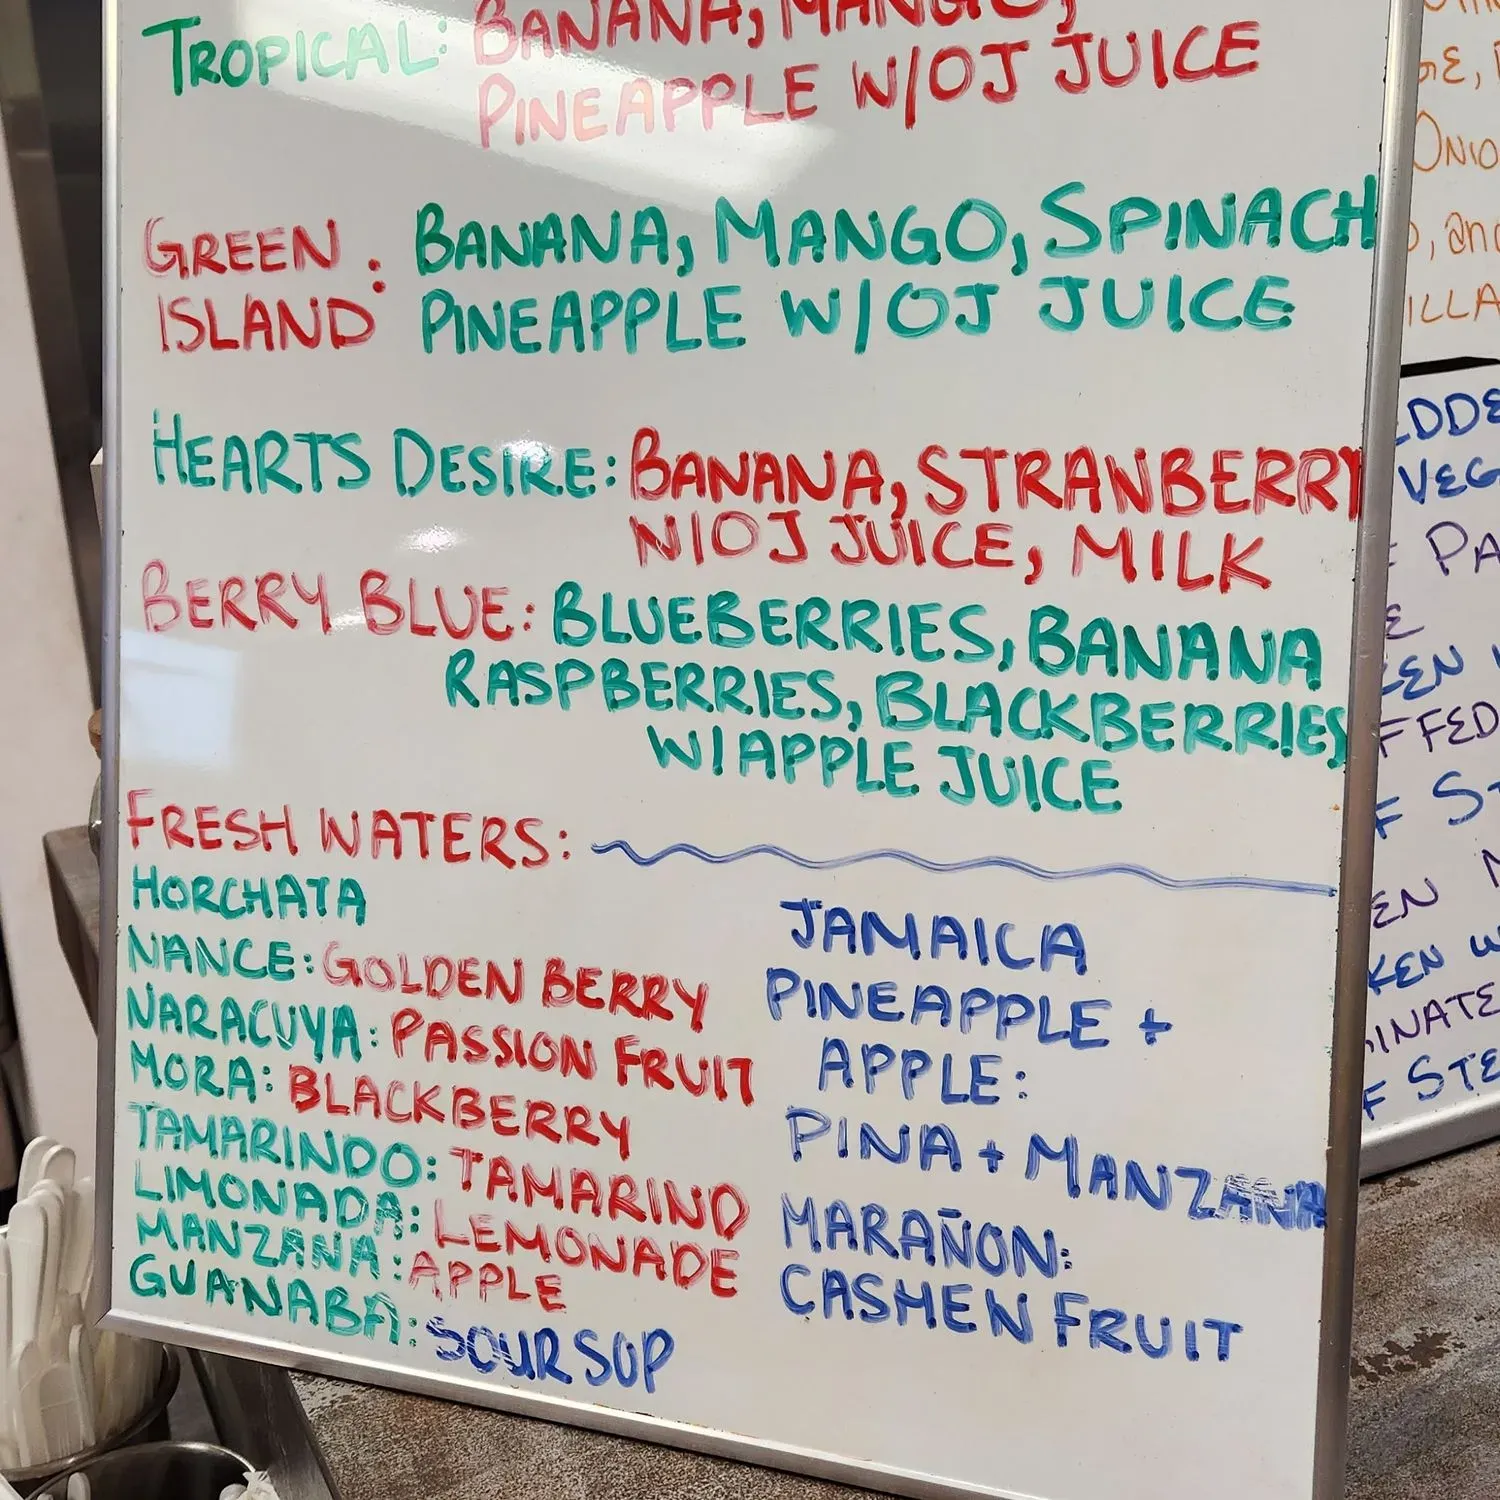 TROPICAL: BANANA, MANGO,
PINEAPPLE W/OJ JUICE
GREEN : BANANA, MANGO, SPINACH
ISLAND PINEAPPLE W/OJ JUICE
HEARTS DESIRE: BANANA, STRAWBERRY
W/OJ JUICE, MILK
BERRY BLUE: BLUEBERRIES, BANANA
RASPBERRIES, BLACKBERRIES
W/APPLE JUICE
FRESH WATERS:
HORCHATA
NANCE: GOLDEN BERRY
MARACUYA: PASSION FRUIT
MORA: BLACKBERRY
TAMARINDO: TAMARIND
LIMONADA: LEMONADE
MANZANA: APPLE
GUANABA: SOUR SOP
JAMAICA
PINEAPPLE +
APPLE:
PINA + MANZANA
MARAÑON:
CASHEW FRUIT